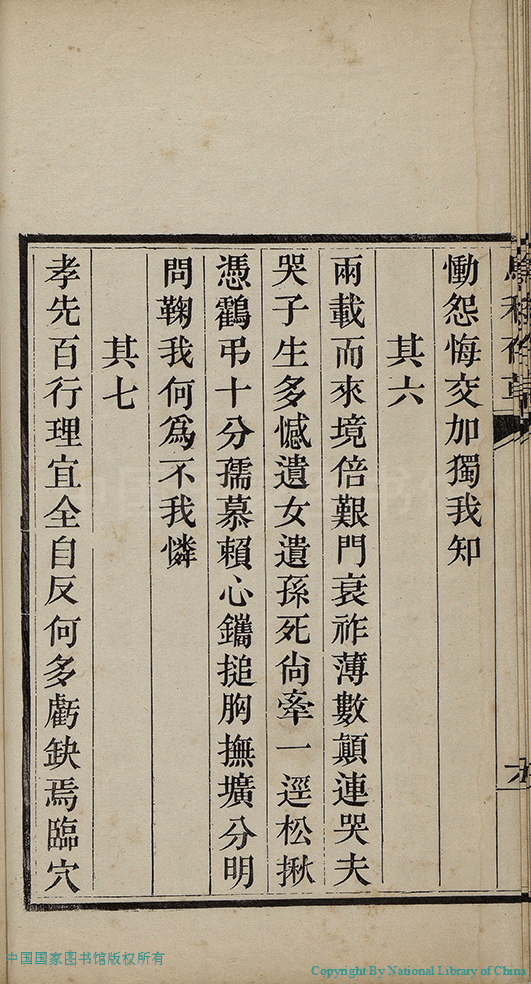 慟怨悔交加獨我知
其六
兩載而來境倍艱門衰祚薄數顛連哭夫
哭子生多憾遺女遺孫死尙牽一逕松揪
憑鸖弔十分孺慕賴心鑴搥胸撫壙分明
問鞠我何爲不我憐
其七
孝先百行理宜全自反何多虧缺焉臨穴
中国国家图书馆版权所有
Copyright By National Library of China